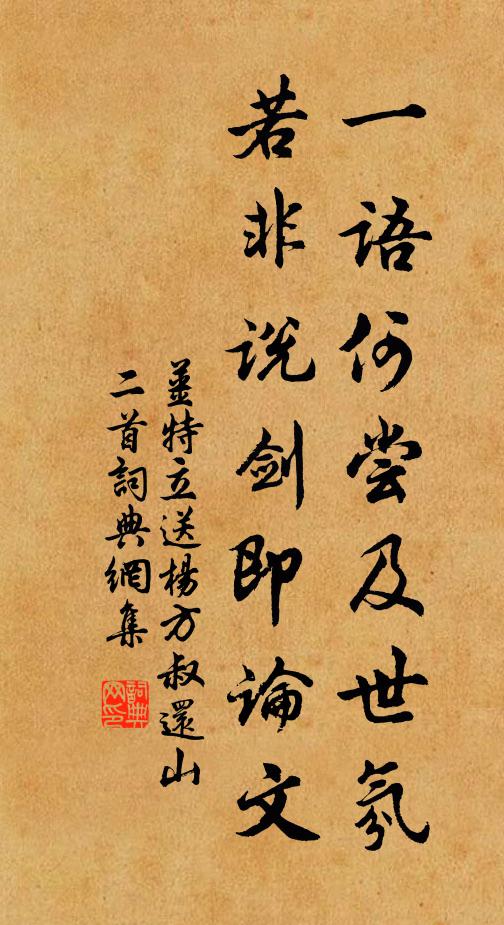 一语何尝及世氛
若非说剑即论文
姜特立送杨方叔還山
二首詞典網集
詞典
网印